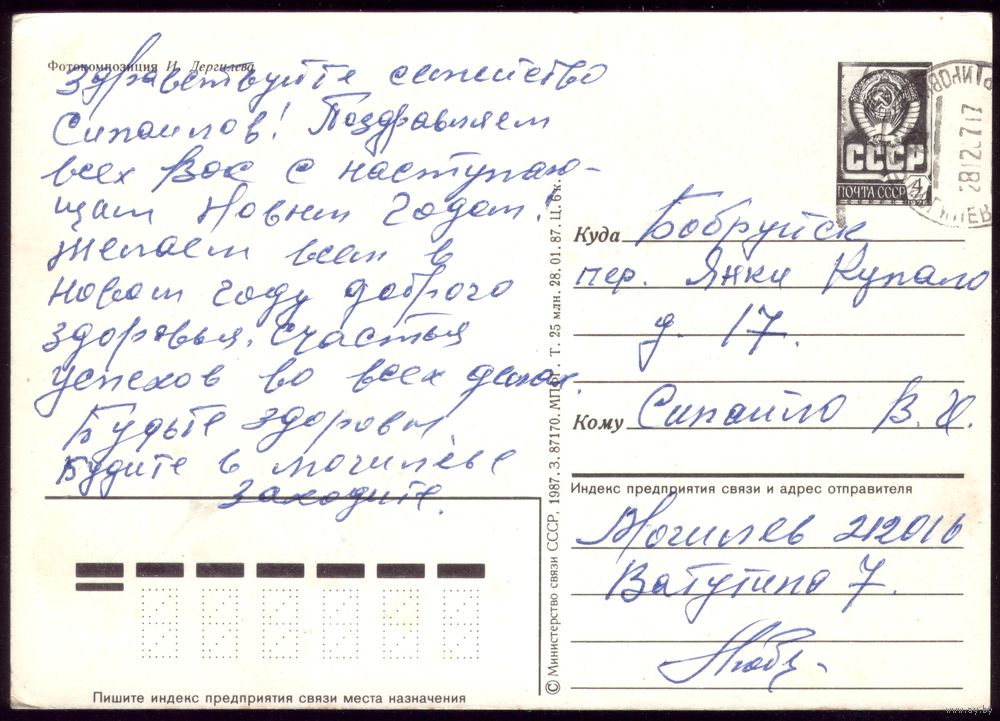 Фотокомпозиция И. Дергилева
Здравствуйте семейство
Сипайлов! Поздравляем
всех Вас с наступаю-
щим Новым Годом!
Желаем всем в
новом году доброго
здоровья, счастья
успехов во всех делах.
Будьте здоровы,
Будите в Могилёве
Заходите.
Пишите индекс предприятия связи места назначения
© Министерство связи СССР, 1987. З. 87170. МПФГ. Т. 25 млн. 28. 01. 87. Ц. 6 к.
СССР
ПОЧТА СССР 4
1976
28 12 7 17
Куда Бобруйск
пер. Янки Купало
д. 17.
Кому Сипайло В. И.
Индекс предприятия связи и адрес отправителя
Могилев 212016
Ватутина 7.
www.ay.by